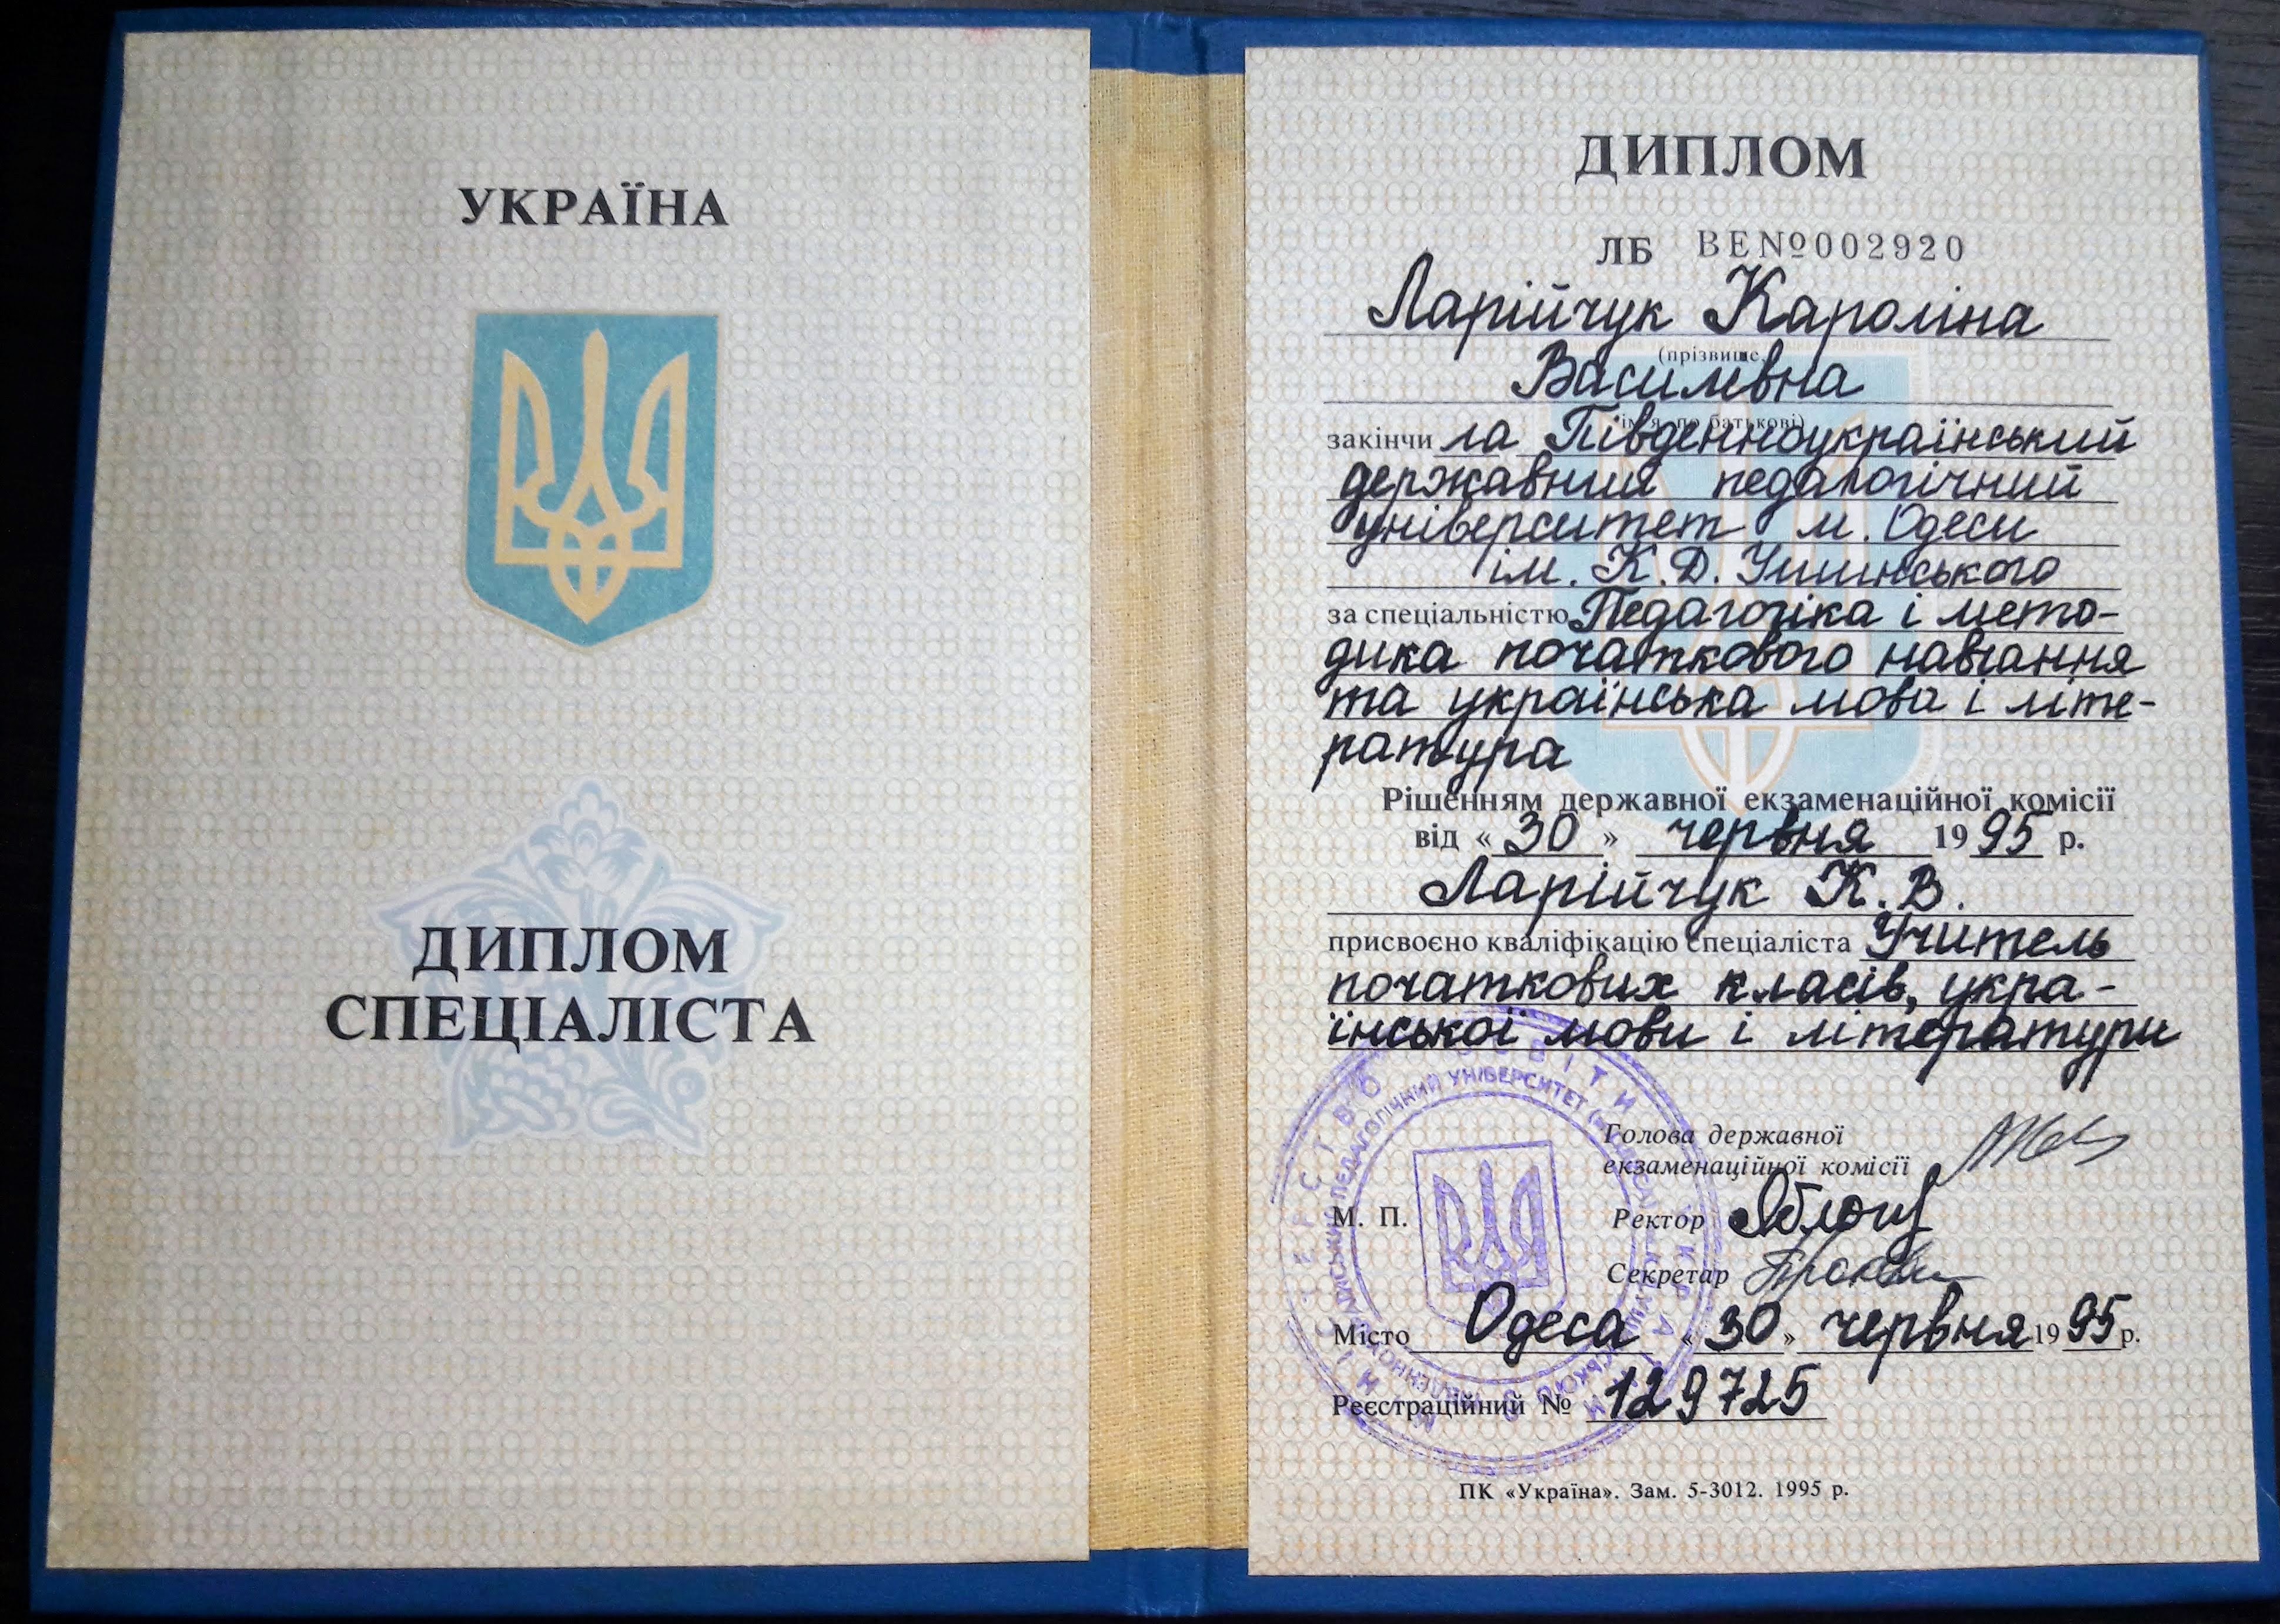 УКРАЇНА
ДИПЛОМ
СПЕЦІАЛІСТА
ДИПЛОМ
ЛБ ВЕ№002920
Ларійчук Кароліна
(прізвище,
Василівна
ім'я, по батькові)
закінчила Південноукраїнський
державний педагогічний
університет м. Одеси
ім. К.Д. Ушинського
за спеціальністю Педагогіка і мето-
дика початкового навчання
та українська мова і літе-
ратура
Рішенням державної екзаменаційної комісії
від «30» червня 1995 р.
Ларійчук К.В.
присвоєно кваліфікацію спеціаліста Учитель
початкових класів, укра-
їнської мови і літератури
Голова державної
екзаменаційної комісії
М. П. Ректор
Секретар
Місто Одеса «30» червня 1995 р.
Реєстраційний № 129725
ПК «Україна». Зам. 5-3012. 1995 р.